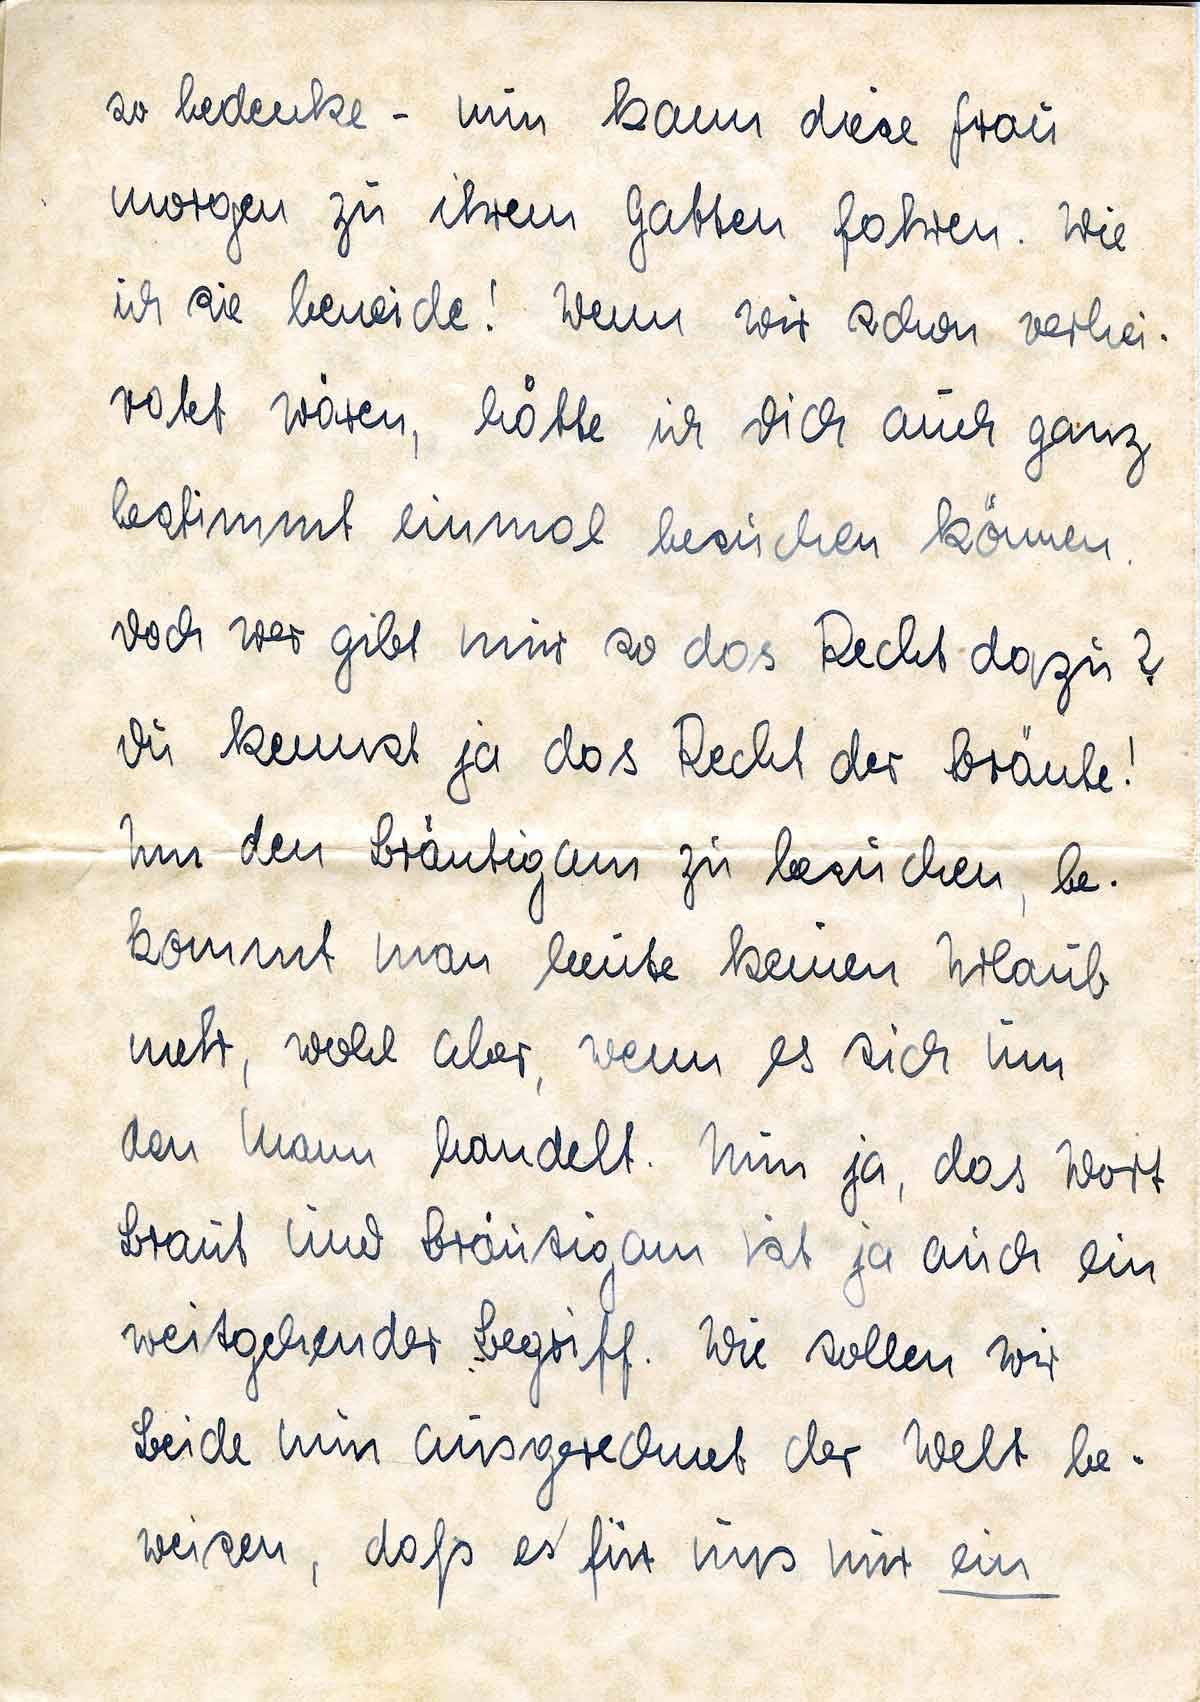 so bedenke - nun kann diese Frau
morgen zu ihrem Gatten fahren. Wie
ich sie beneide! Wenn wir schon verhei-
ratet wären, hätte ich Dich auch ganz
bestimmt einmal besuchen können.
Doch wer gibt mir so das Recht dazu?
Du kennst ja das Recht der Bräute!
Um den Bräutigam zu besuchen, be-
kommt man heute keinen Urlaub
mehr, wohl aber, wenn es sich um
den Mann handelt. Nun ja, das Wort
Braut und Bräutigam ist ja auch ein
weitgehender Begriff. Wie sollen wir
Beide nun ausgerechnet der Welt be-
weisen, daß es für uns nur ein